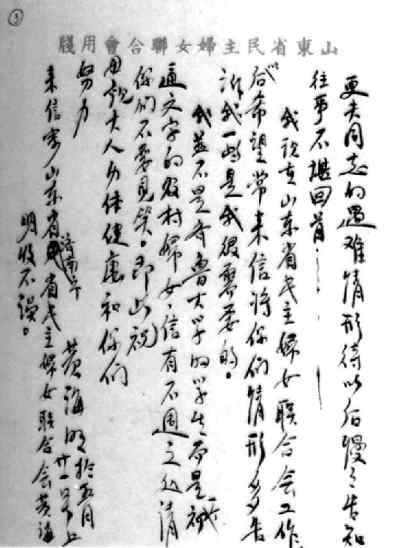 山東省民主婦女聯合會用牋
更夫同志的遇难情形待以后慢々告知
往事不堪回首……！
我现在山东省民主婦女联合会工作
后希望常来信将你们情形多告
诉我一些是我很需要的。
我並不是齐鲁大学的学生而是一初
通文字的农村婦女，信有不週之处请
你们不要见笑。即此祝
大人身体健康和你们
努力
黄海明 拾五月廿一号上
来信寄山东省济南市省民主婦女联合会黄海
明收不误。